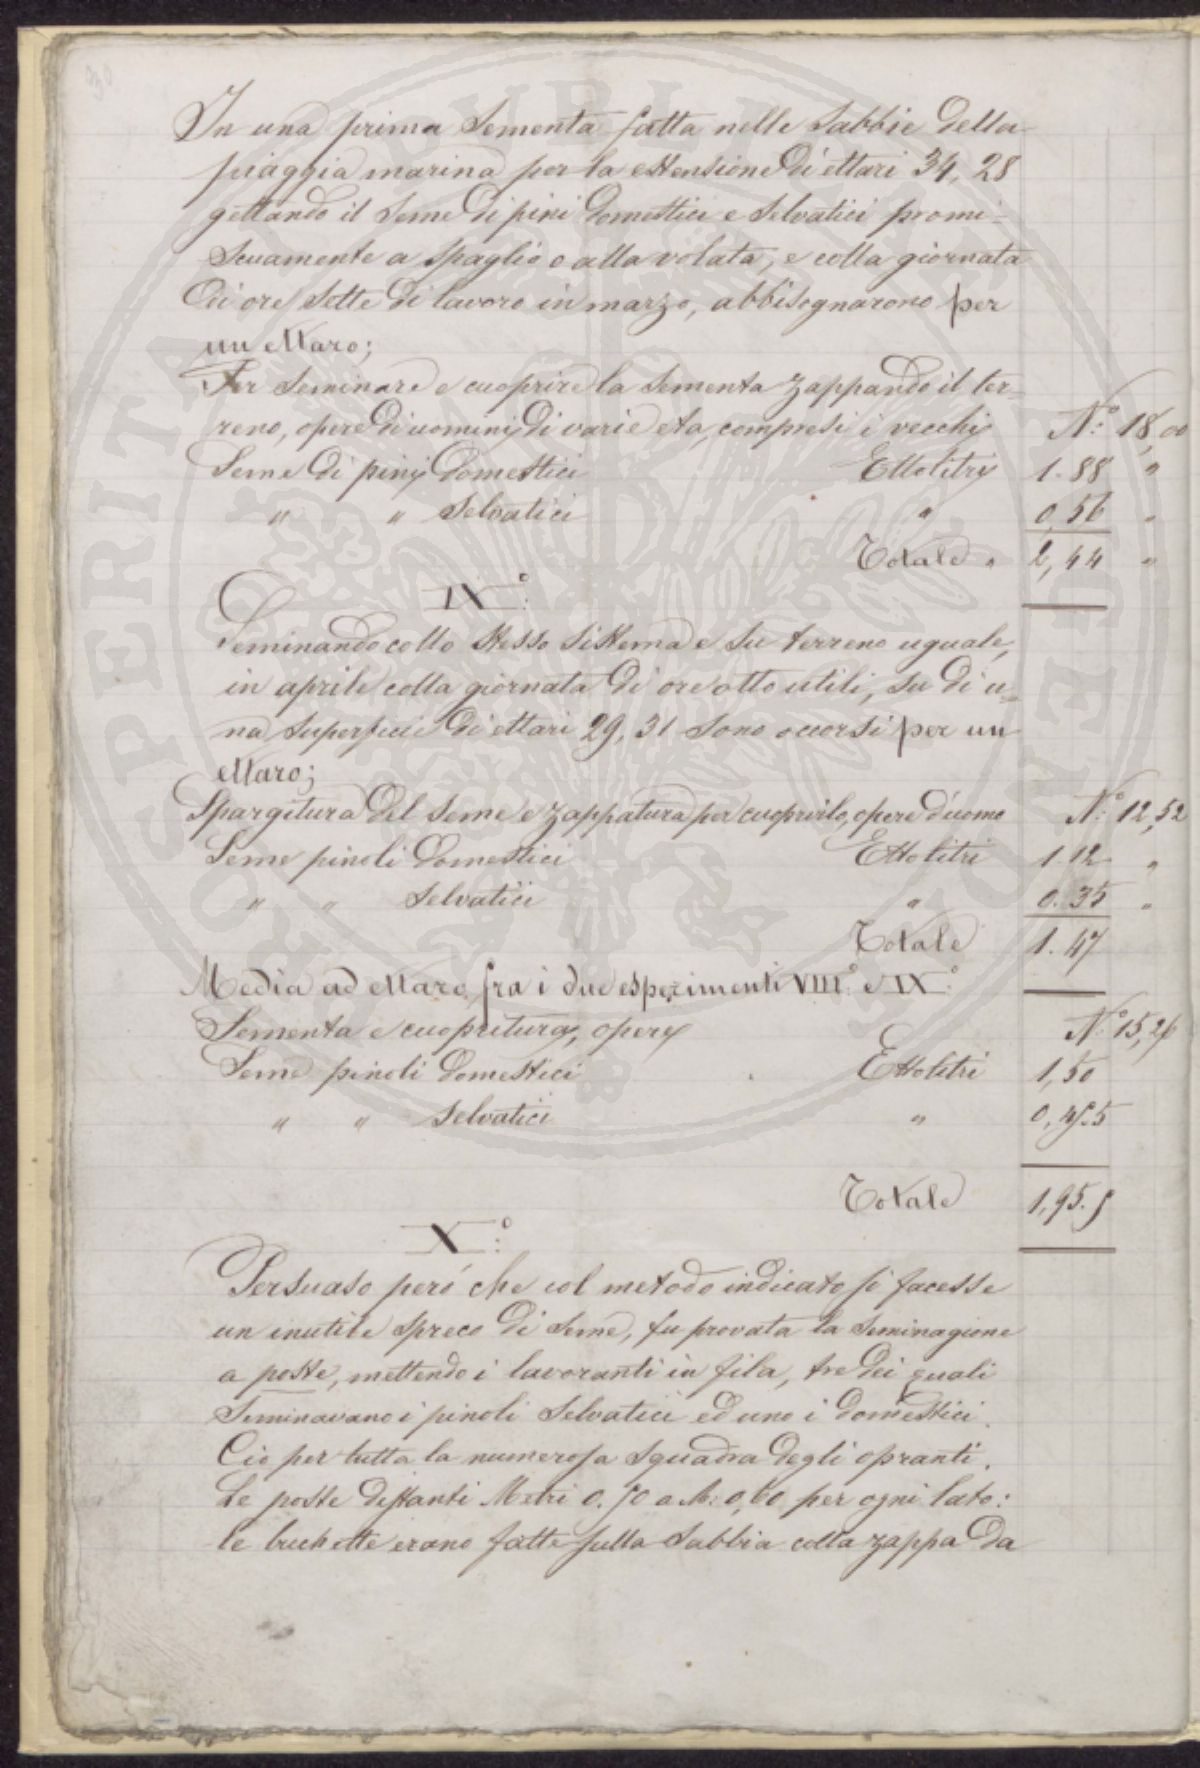 In una prima Sementa fatta nelle Sabbie della
piaggia marina per la estensione di ettari 34, 28
gettando il Seme di pini domestici e Selvatici promi-
scuamente a spaglio o alla volata, e colla giornata
di ore Sette di lavoro in marzo, abbisognarono per
un ettaro;
Per Seminare e cuoprire la Sementa zappando il ter-
reno, opere di uomini di varie eta, compresi i vecchi N.° 18,00
Seme di pini domestici Ettolitri 1.88 "
" " Selvatici " 0,56 "
Totale " 2,44 "
IX.°
Seminando collo Stesso Sistema e Su terreno uguale,
in aprile colla giornata di ore otto utili, Su di u=
na Superficie di ettari 29, 31 Sono occorsi per un
ettaro;
Spargitura del Seme e zappatura per cuoprirlo, opere d'uomo N.° 12,52
Seme pinoli domestici Ettolitri 1.12 "
" " Selvatici " 0.35 "
Totale 1.47
Media ad ettaro fra i due esperimenti VIII.° e IX.°
Sementa e cuopritura, opere N.° 15,26
Seme pinoli domestici Ettolitri 1,50
" " Selvatici " 0,45.5
Totale 1,95.5
X.°
Persuaso però che col metodo indicato si facesse
un inutile Spreco di Seme, fu provata la Seminagione
a poste, mettendo i lavoranti in fila, tre dei quali
Seminavano i pinoli Selvatici ed uno i domestici.
Cio per tutta la numerosa Squadra degli opranti.
Le poste distanti Metri 0.50 a M: 0,60 per ogni lato:
le buchette erano fatte sulla Sabbia colla zappa da
PROSPERITA PUBLICA